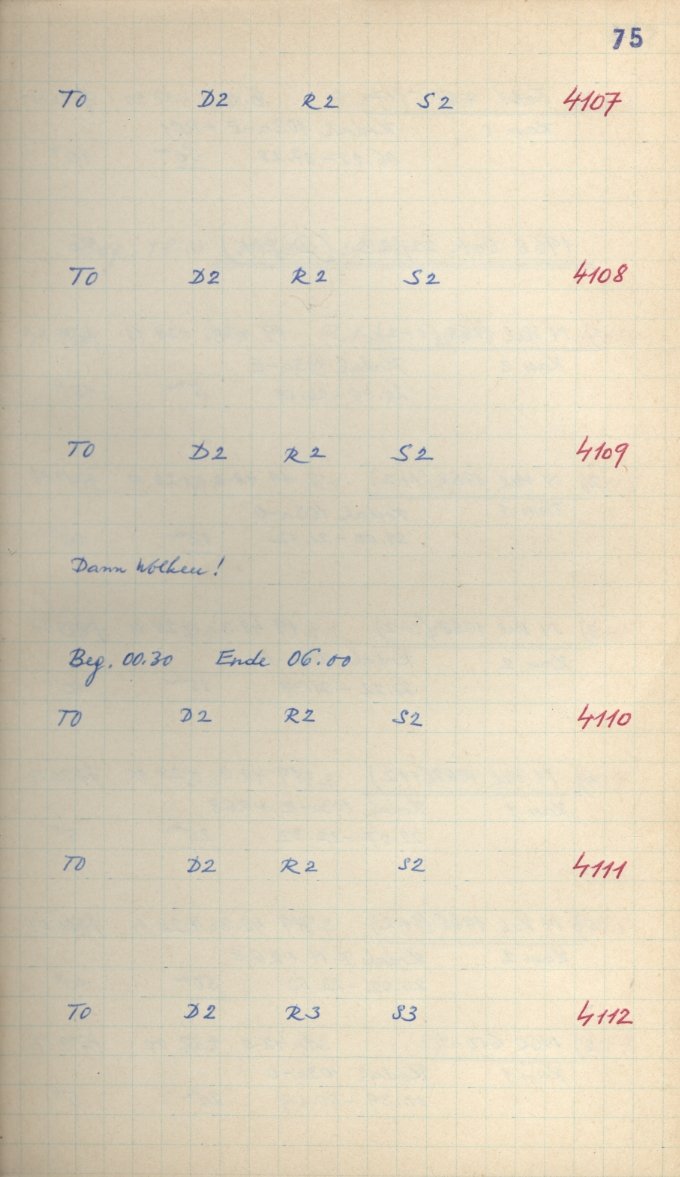 75
T0 D2 R2 S2 4107
T0 D2 R2 S2 4108
T0 D2 R2 S2 4109
Dann Wolken!
Beg. 00.30 Ende 06.00
T0 D2 R2 S2 4110
T0 D2 R2 S2 4111
T0 D2 R3 S3 4112